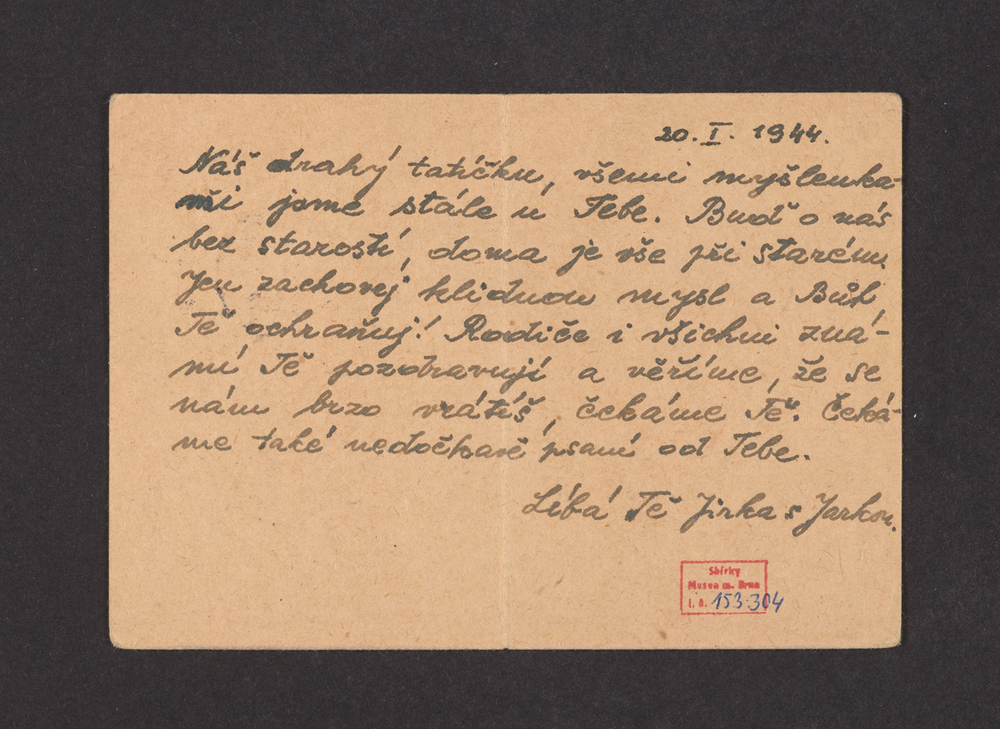 20. I. 1944.
Náš drahý tatíčku, všemi myšlenka-
mi jsme stále u Tebe. Buď o nás
bez starostí, doma je vše při starém.
Jen zachovej klidnou mysl a Bůh
Tě ochraňuj! Rodiče i všichni zná-
mí Tě pozdravují a věříme, že se
nám brzo vrátíš, čekáme Tě. Čeká-
me také nedočkavě psaní od Tebe.
Líbá Tě Jirka s Jarkou.
Sbírky
Musea m. Brna
i. č. 153.304